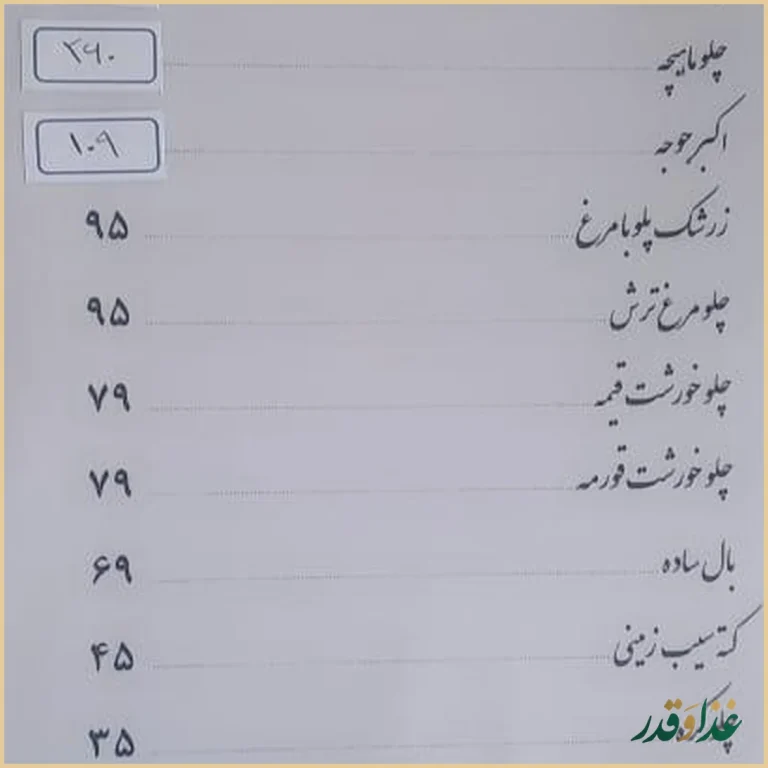 چلو ماهیچه ۲۹۰
اکبر جوجه ۱۰۹
زرشک پلو با مرغ ۹۵
چلو مرغ ترش ۹۵
چلو خورشت قیمه ۷۹
چلو خورشت قورمه ۷۹
بال ساده ۶۹
کته سیب زمینی ۴۵
۳۵
غذا و قدر